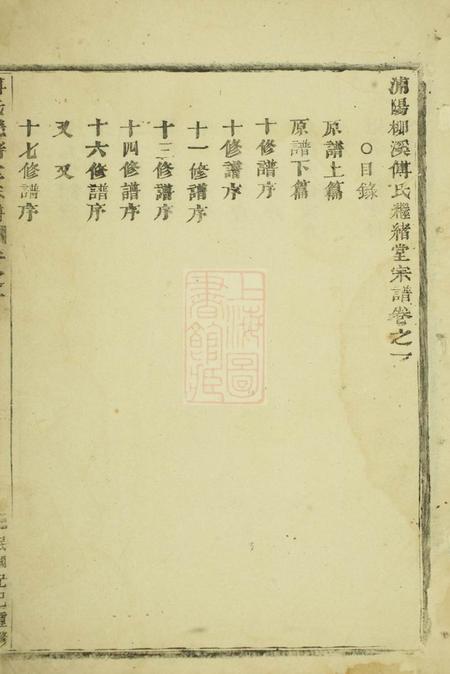 浦陽柳溪傅氏繼緒堂宗譜卷之一
○目錄
原譜上篇
原譜下篇
十修譜序
十修譜序
十一修譜序
十三修譜序
十四修譜序
十六修譜序
又 又
十七修譜序
民國己巳重修
上海圖書館藏